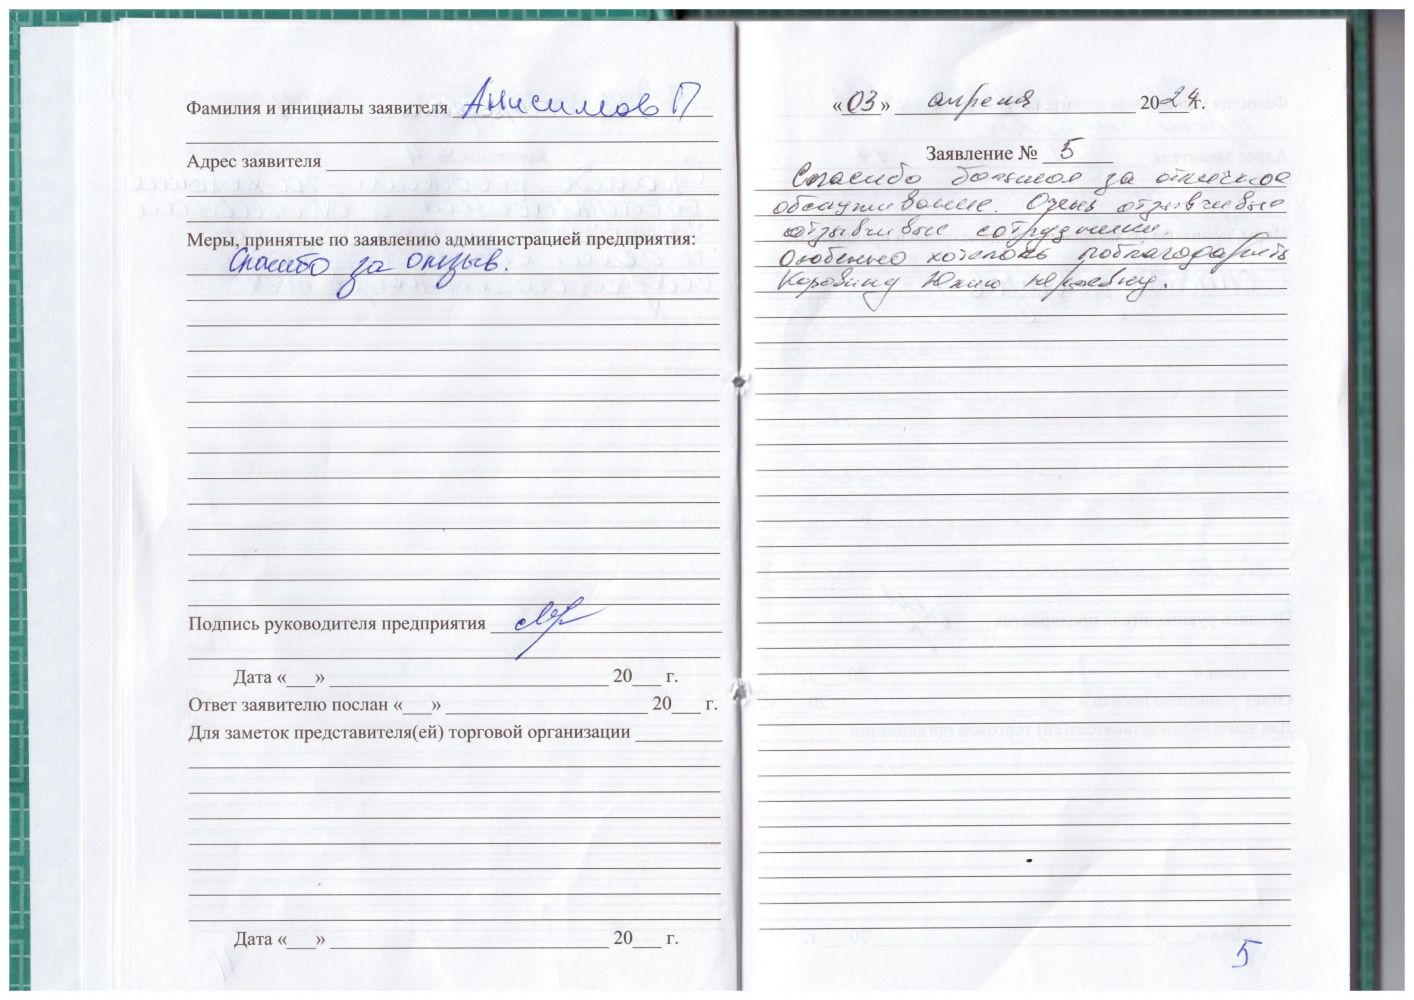 Фамилия и инициалы заявителя Анисимов П
Адрес заявителя
Меры, принятые по заявлению администрацией предприятия:
Спасибо за отзыв.
Подпись руководителя предприятия
Дата «___» ____________ 20___ г.
Ответ заявителю послан «___» ____________ 20___ г.
Для заметок представителя(ей) торговой организации
Дата «___» ____________ 20___ г.
«03» апреля 2024г.
Заявление № 5
Спасибо большое за отличное
обслуживание. Очень отзывчивые
отзывчивые сотрудники.
Особенно хотелось поблагодарить
Коровину Юлию
5